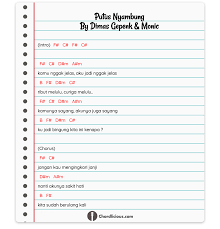 Putus Nyambung
By Dimas Gepenk & Monic
[Intro] F# C# F# C#
F# C# D#m A#m
kamu nggak jelas, aku jadi nggak jelas
B F# D#m C#
ribut melulu, curiga melulu,
F# C# D#m A#m
kamunya sayang, akunya juga sayang
B F# D#m C#
ku jadi bingung kita ini kenapa ?
[Chorus]
F# C#
jangan kau mengingkari janji
D#m A#m
nanti akunya sakit hati
B F#
kita sudah berulang kali
Chordlicious.com